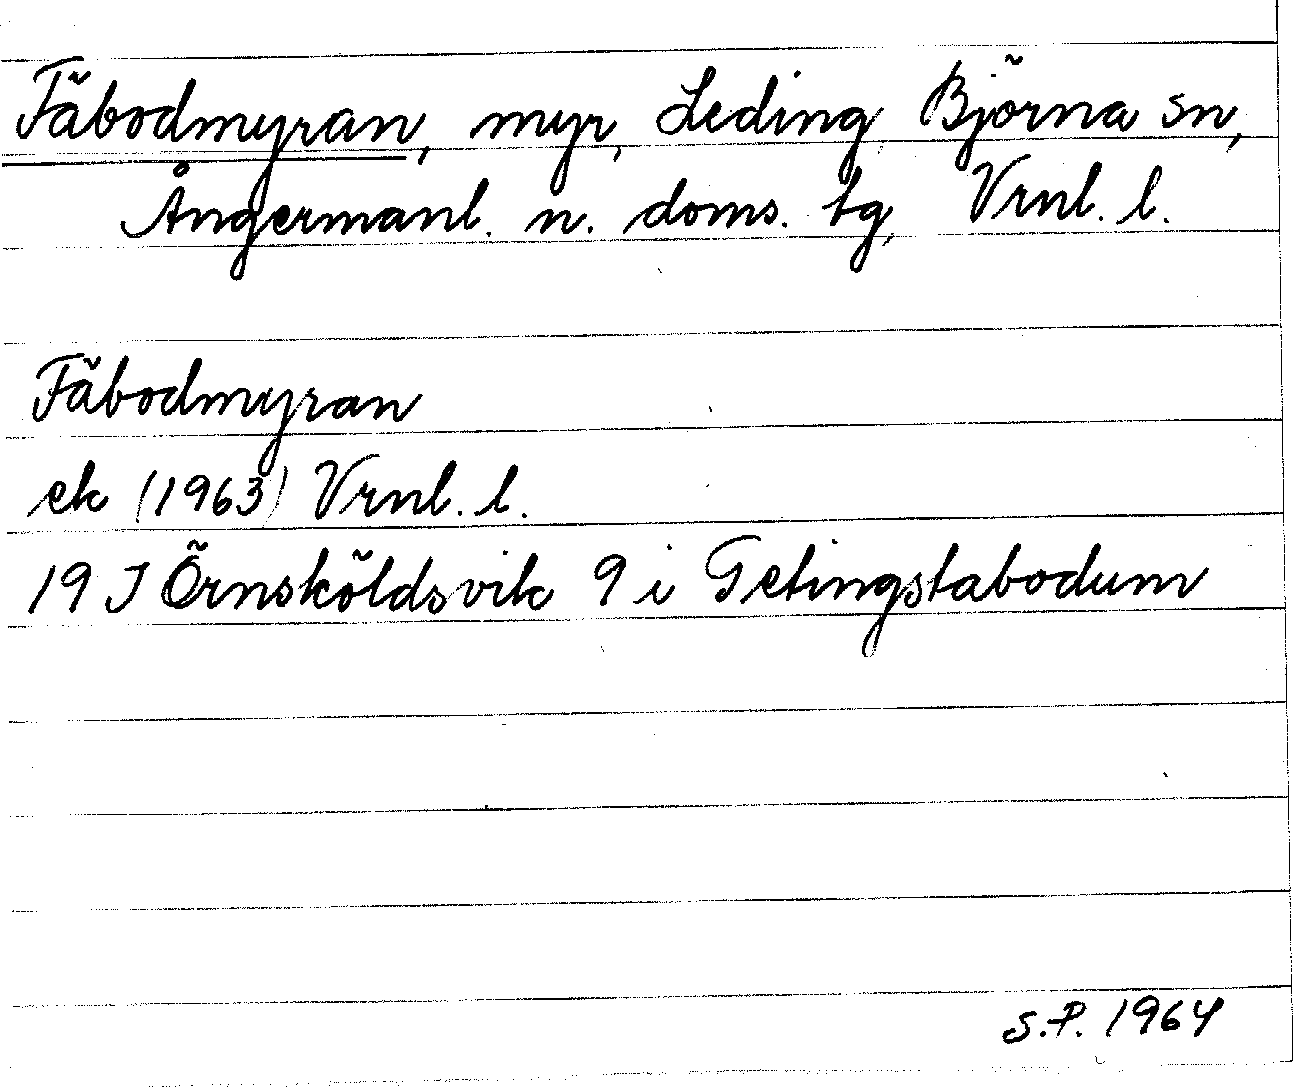 Fäbodmyran, myr, Leding, Björna sn,
Ångermanl. n. doms. tg, Vrnl. l.
Fäbodmyran
ek (1963) Vrnl. l.
19 J Örnsköldsvik 9 i Getingstabodum
S.P. 1964